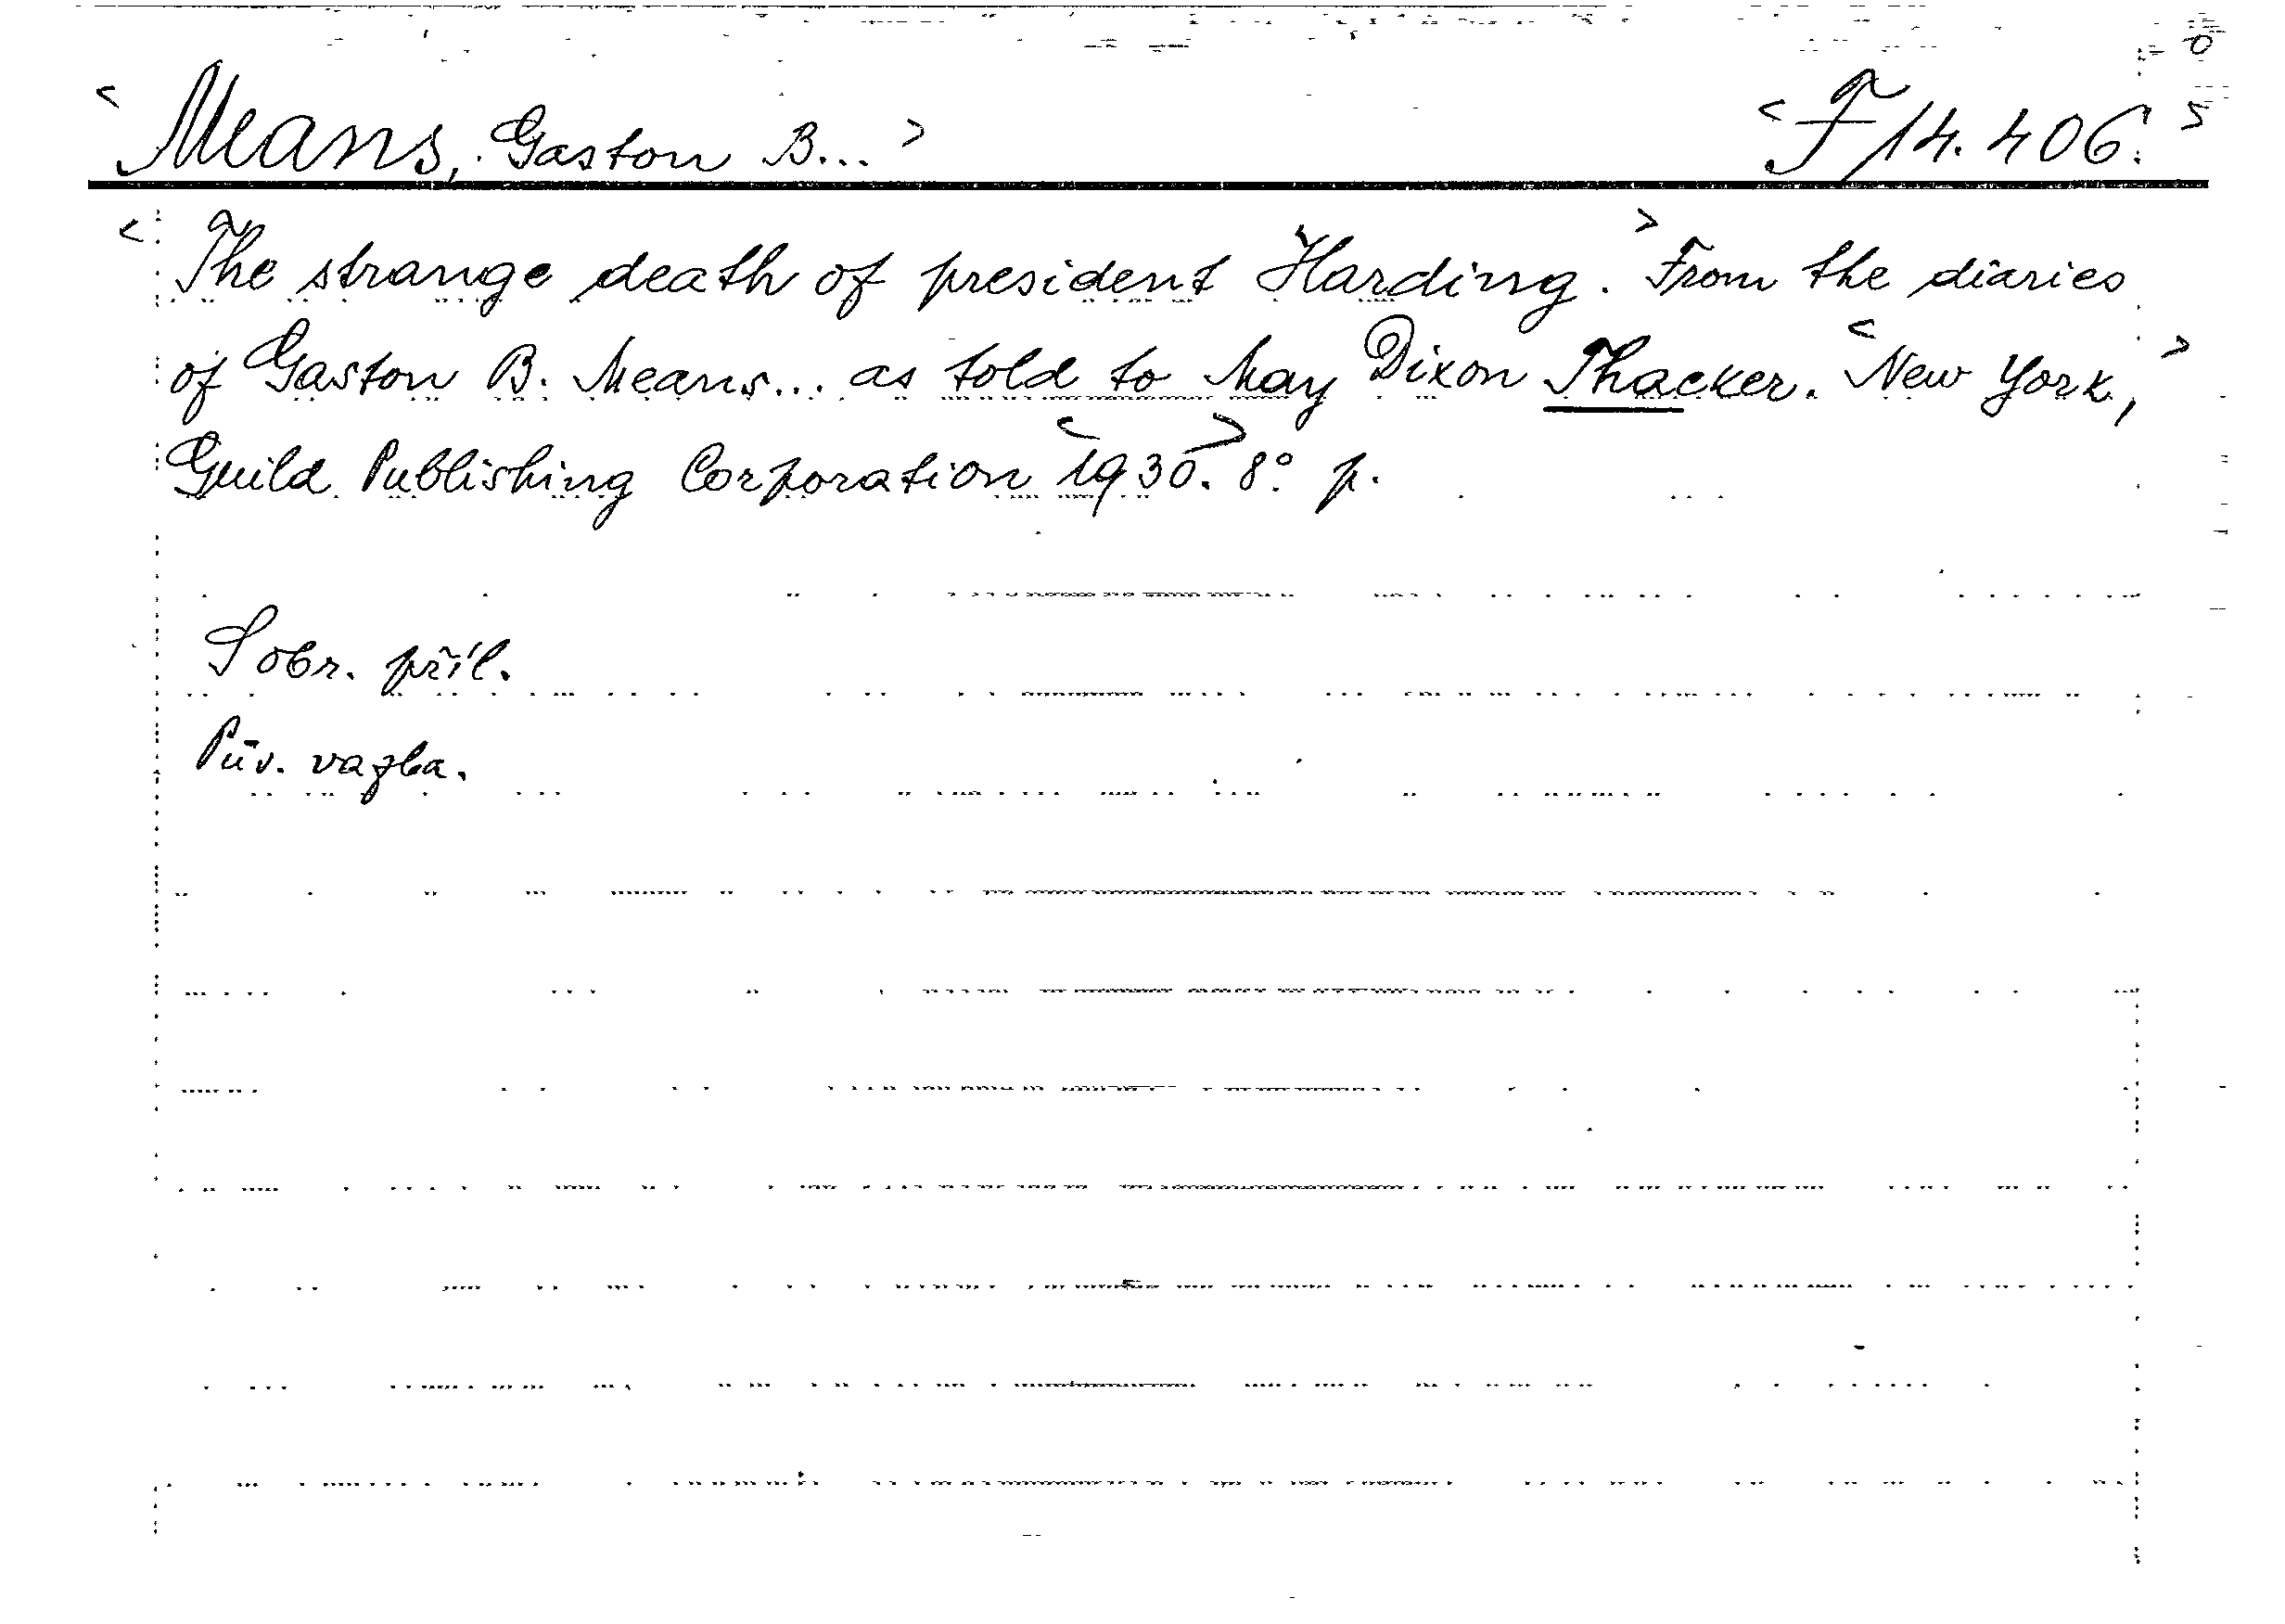 <Means, Gaston B...> <F 14.406.>
<The strange death of president Harding.> From the diaries
of Gaston B. Means... as told to May Dixon Thacker. <New York,>
Guild Publishing Corporation <1930>. 8°. p.
S obr. příl.
Pův. vazba.